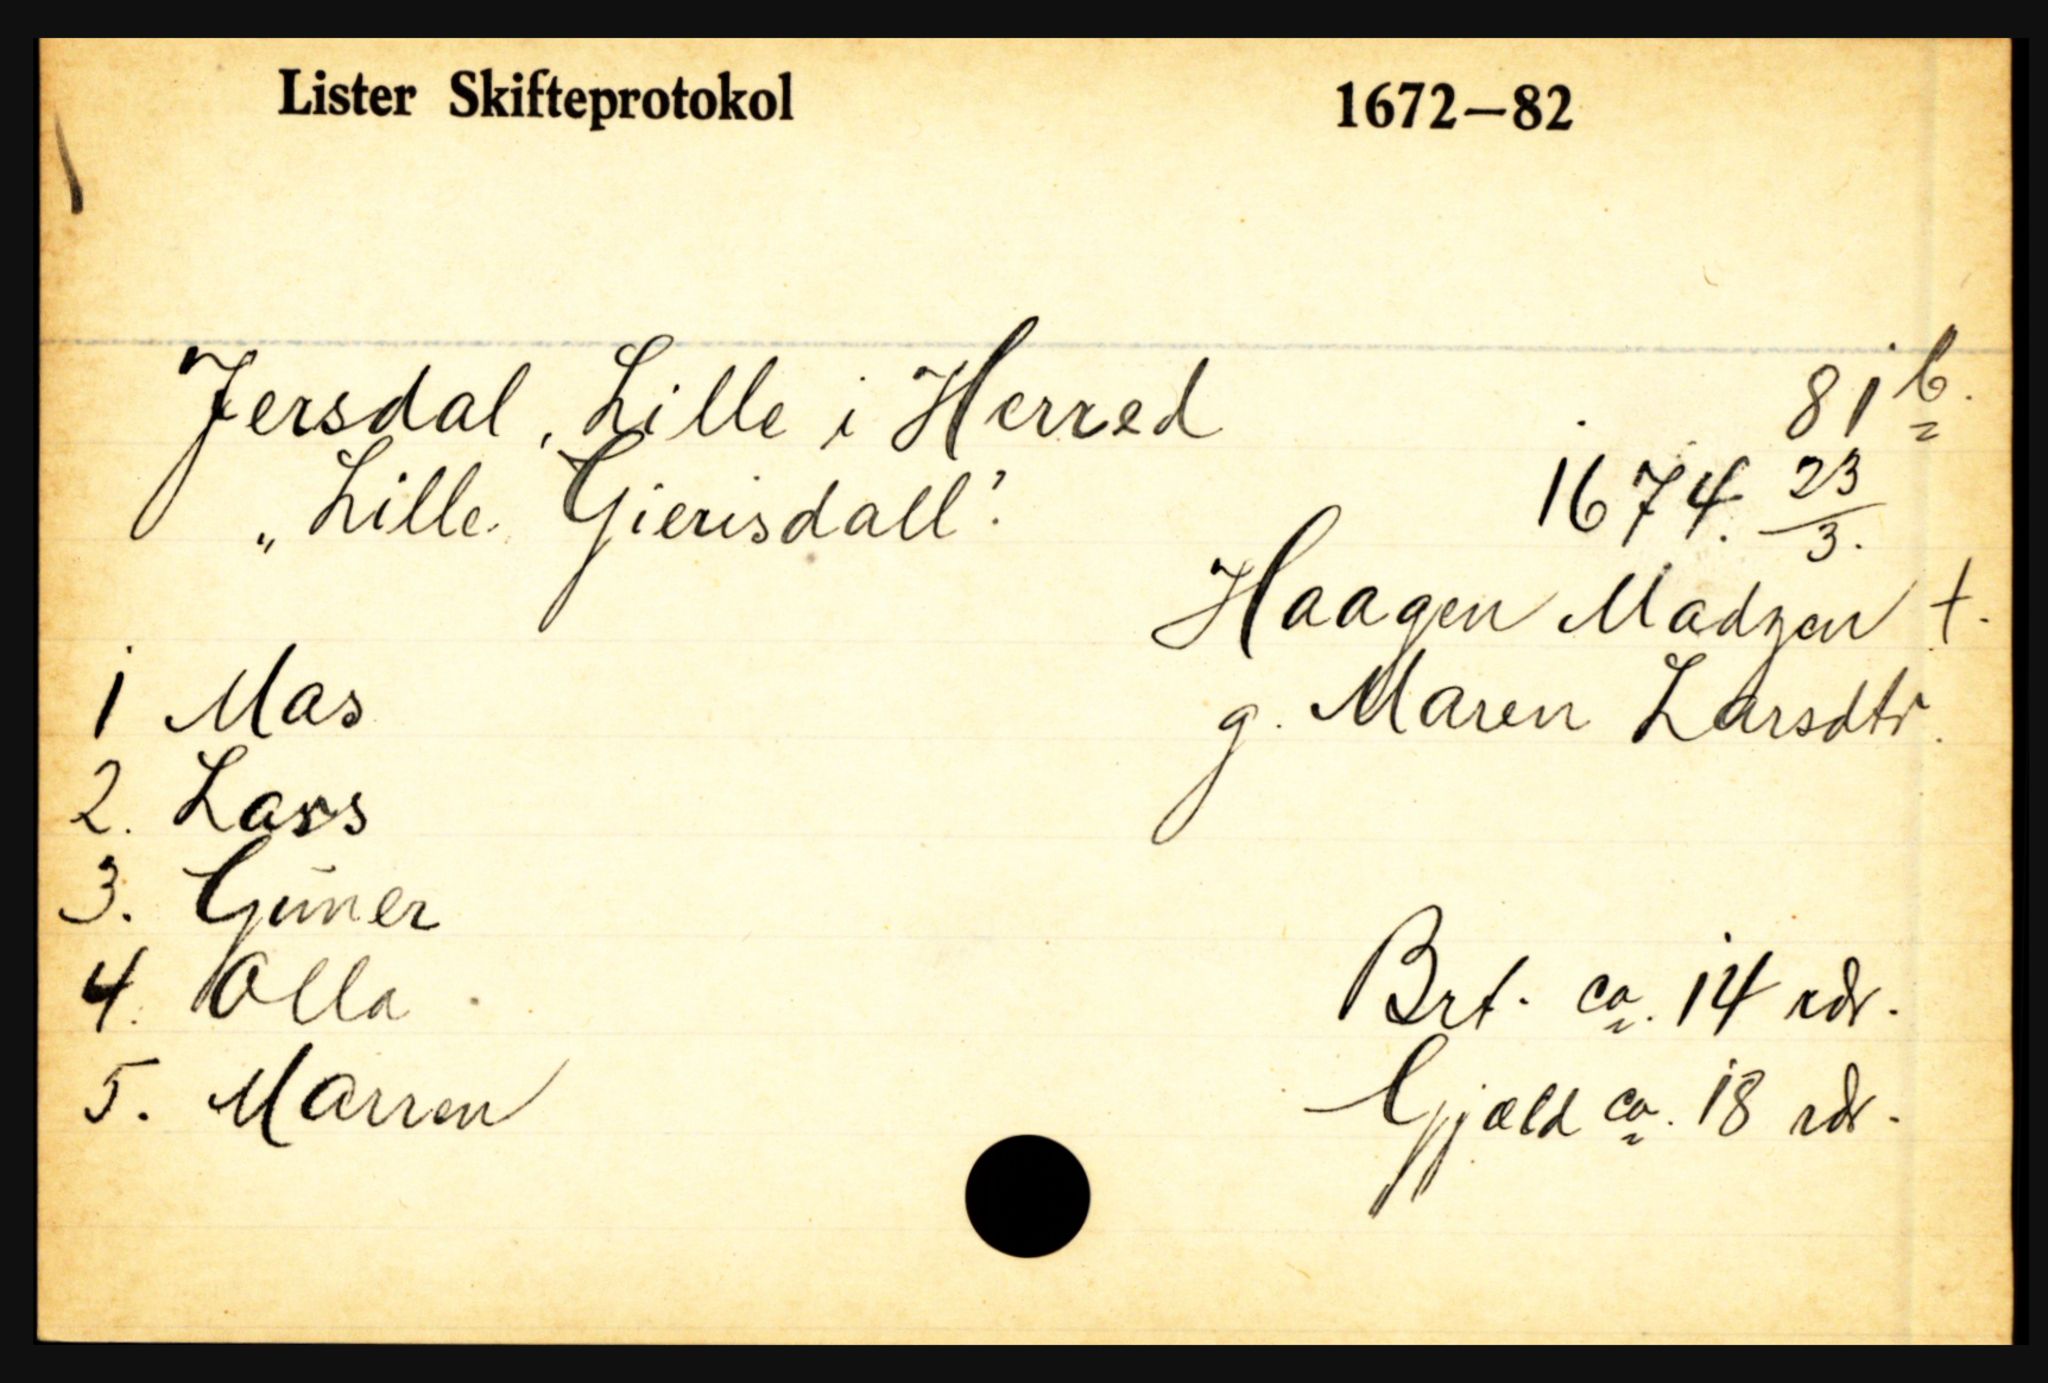 Lister Skifteprotokol 1672—82
Jersdal, Lille i Herred 81 b.
„Lille Gierisdall". 1674. 23/3.
Haagen Madzen †.
1 Mas g. Maren Larsdtr.
2. Lars
3. Guner
4. Olla Brt. ca. 14 rdr.
5. Marren Gjæld ca. 18 rdr.